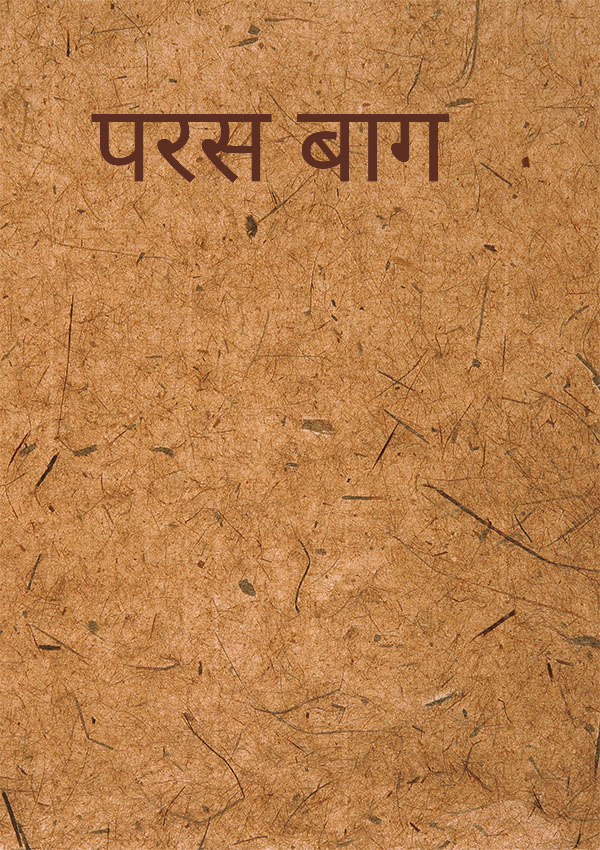 परस बाग